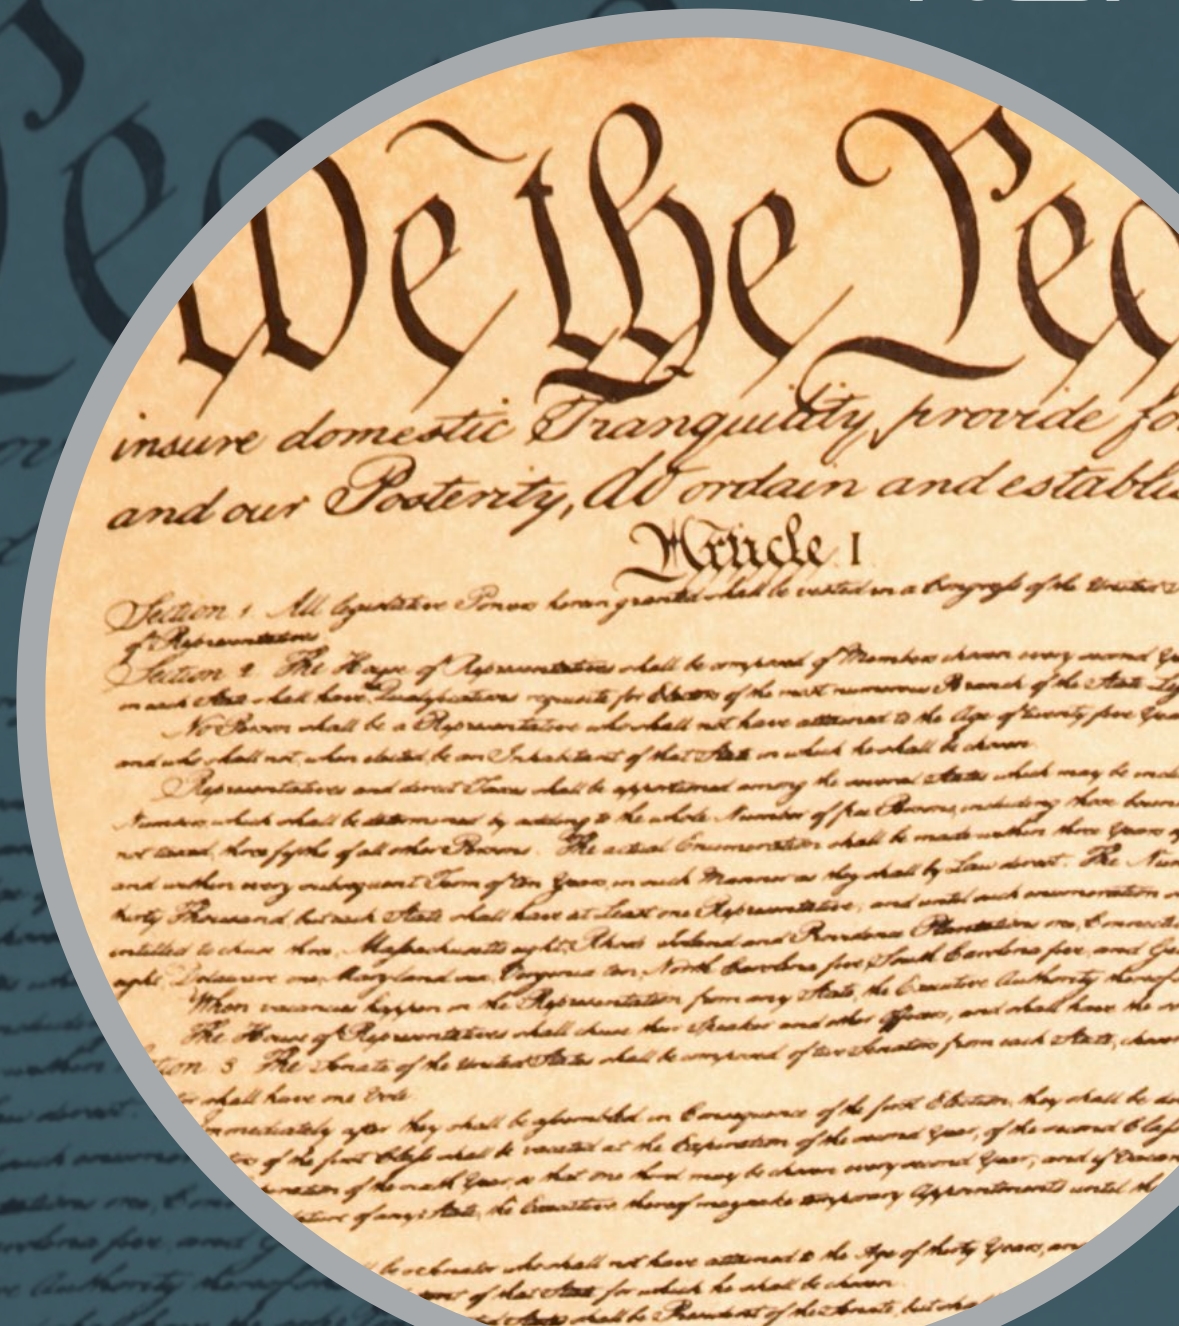 We the Peo
insure domestic Tranquility, provide fo
and our Posterity, do ordain and establis
Article I
Section 1. All legislative Powers herein granted shall be vested in a Congress of the United S
of Representatives
Section 2. The House of Representatives shall be composed of Members chosen every second Yea
in each State shall have the Qualifications requisite for Electors of the most numerous Branch of the State Leg
No Person shall be a Representative who shall not have attained to the Age of twenty five Year
and who shall not, when elected, be an Inhabitant of that State in which he shall be chosen.
Representatives and direct Taxes shall be apportioned among the several States which may be inclu
Numbers, which shall be determined by adding to the whole Number of free Persons, including those boun
not taxed, three fifths of all other Persons. The actual Enumeration shall be made within three Years af
and within every subsequent Term of ten Years, in such Manner as they shall by Law direct. The Num
thirty Thousand, but each State shall have at Least one Representative; and until such enumeration s
entitled to chuse three, Massachusetts eight, Rhode Island and Providence Plantations one, Connecticu
eight, Delaware one, Maryland six, Virginia ten, North Carolina five, South Carolina five, and Geo
When vacancies happen in the Representation from any State, the Executive Authority thereof
The House of Representatives shall chuse their Speaker and other Officers; and shall have the so
tion 3. The Senate of the United States shall be composed of two Senators from each State, chosen
tor shall have one Vote.
Immediately after they shall be assembled in Consequence of the first Election, they shall be div
tors of the first Class shall be vacated at the Expiration of the second Year, of the second Class
piration of the sixth Year, so that one third may be chosen every second Year; and if Vacanc
lature of any State, the Executive thereof may make temporary Appointments until the
ll be a Senator who shall not have attained to the Age of thirty Years, and
of that State for which he shall be chosen.
ed States shall be President of the Senate, but shall